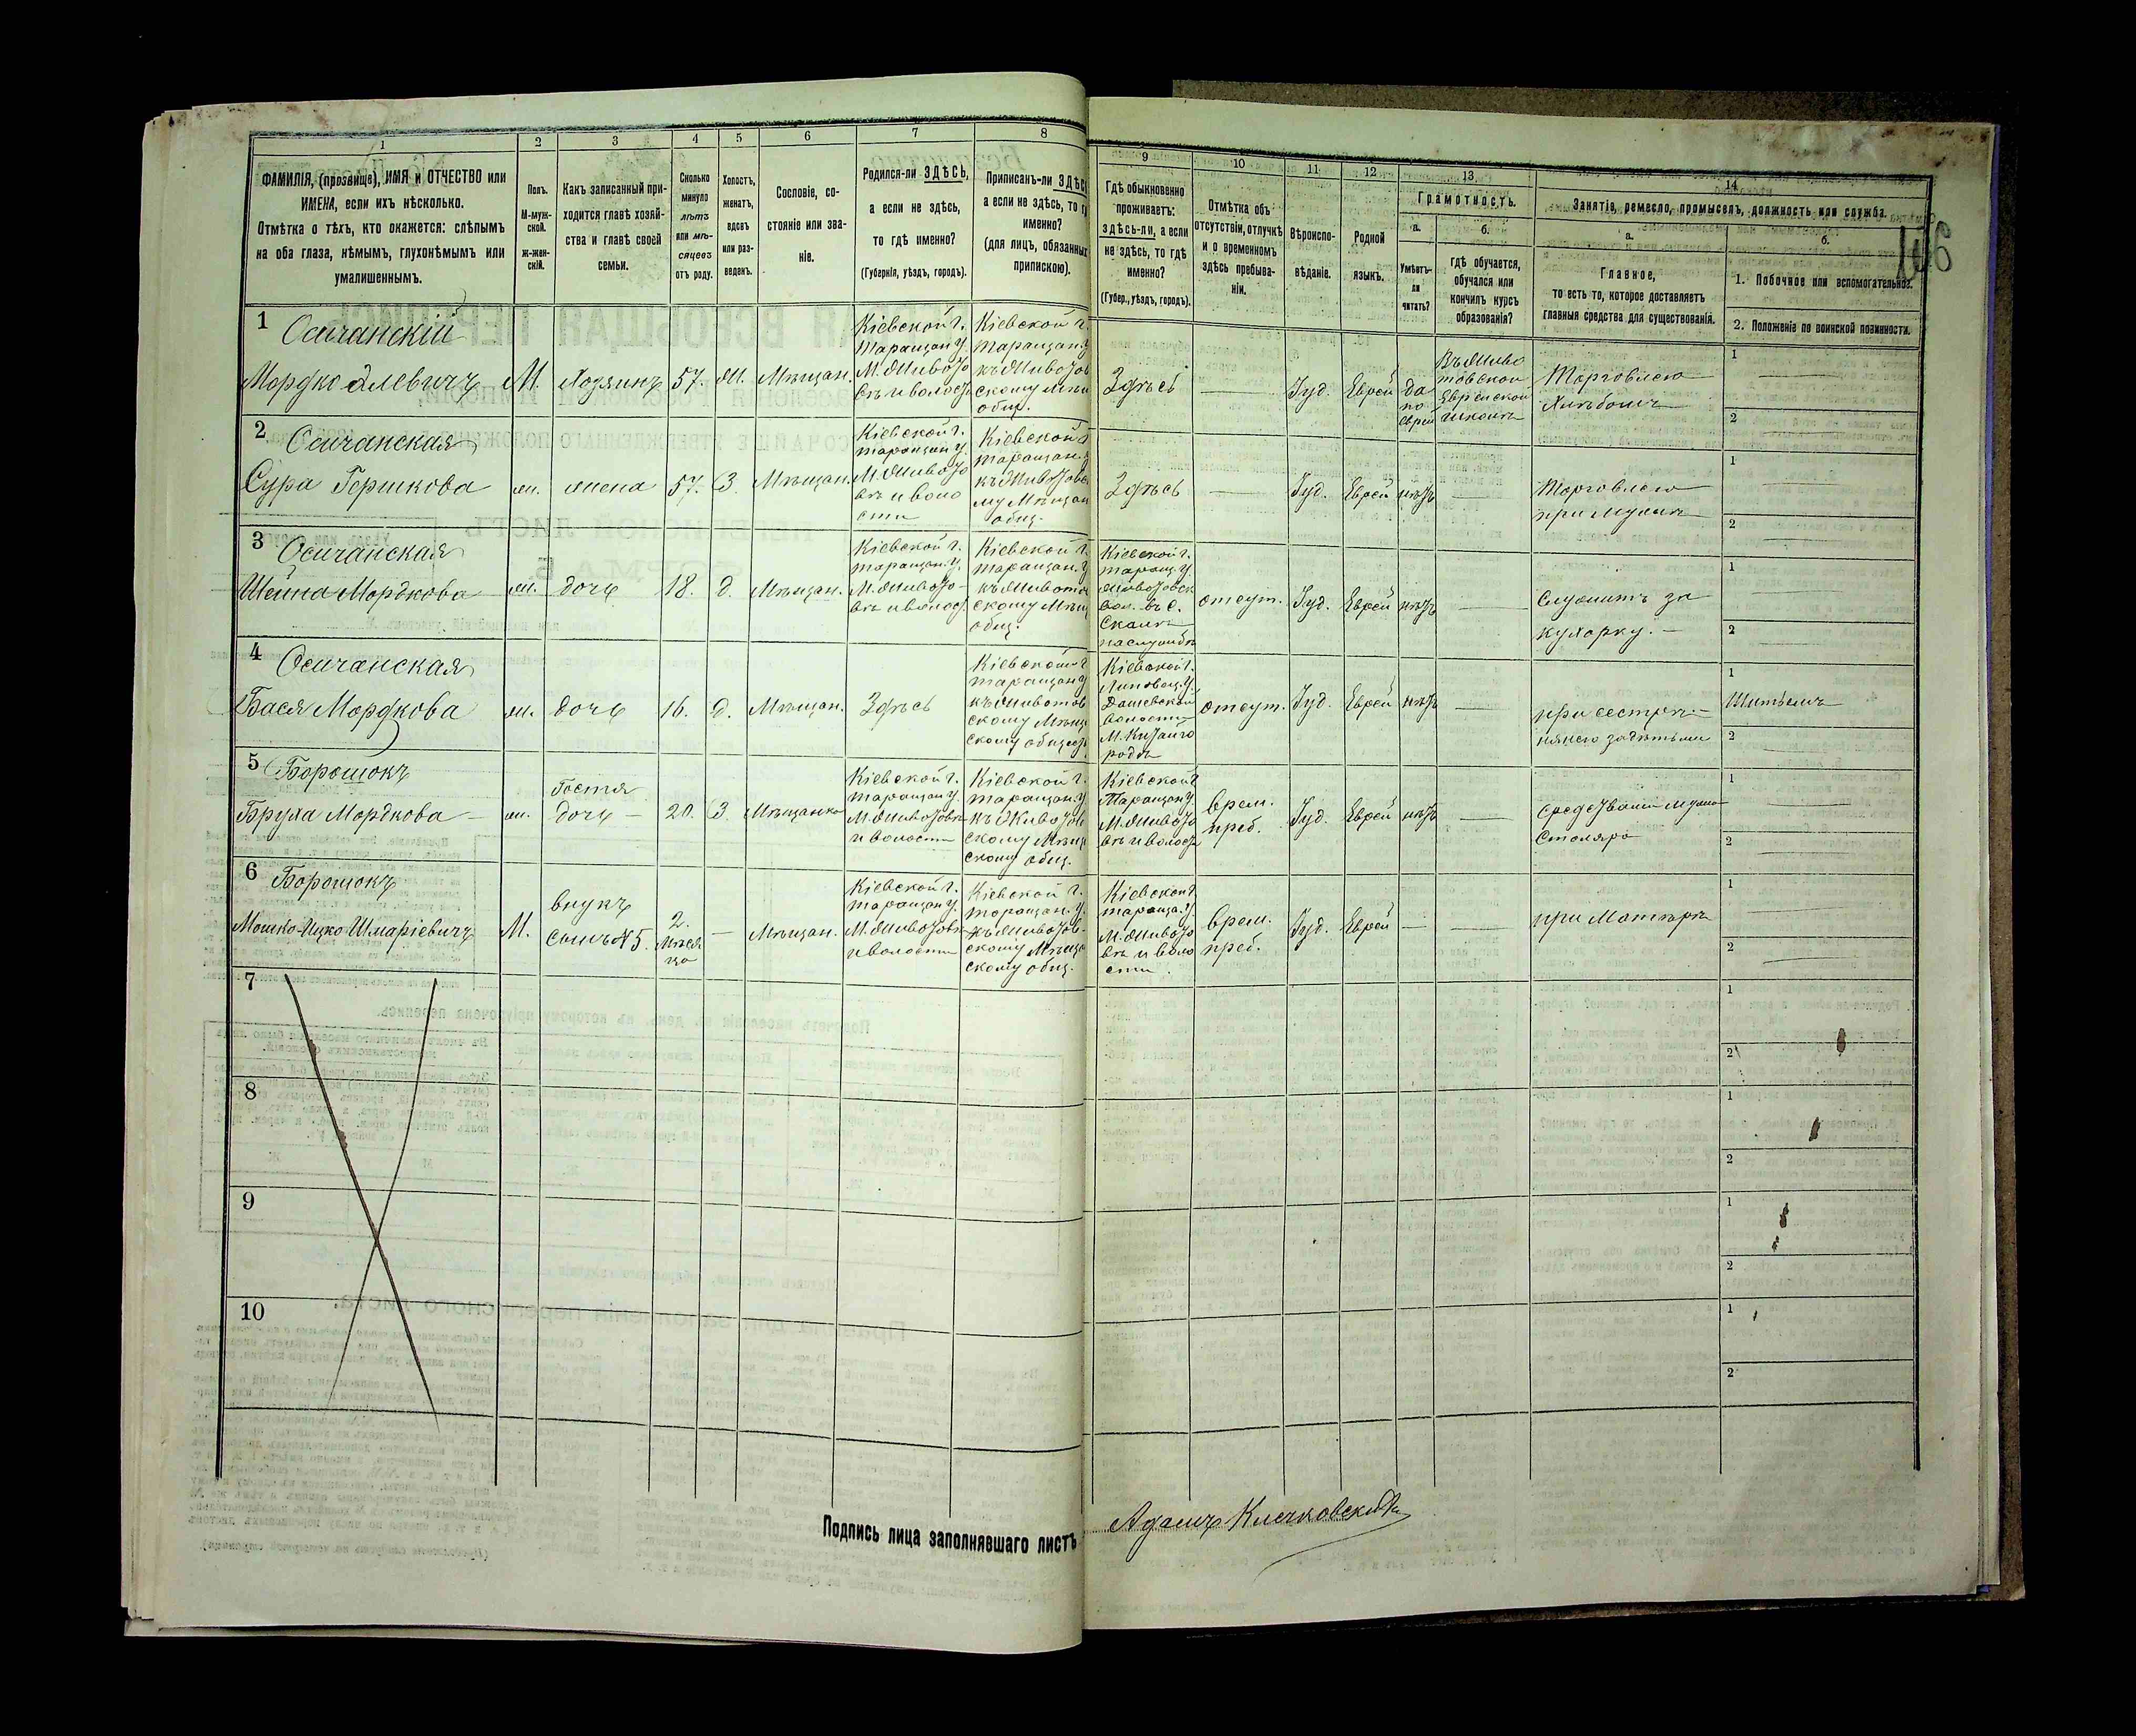 1
2
3
4
5
6
7
8
ФАМИЛІЯ, (прозвище), ИМЯ и ОТЧЕСТВО или
ИМЕНА, если ихъ нѣсколько.
Отмѣтка о тѣхъ, кто окажется: слѣпымъ
на оба глаза, нѣмымъ, глухонѣмымъ или
умалишеннымъ.
Полъ.
М-муж-
ской.
ж-жен-
скій.
Какъ записанный при-
ходится главѣ хозяй-
ства и главѣ своей
семьи.
Сколько
минуло
лѣтъ
или мѣ-
сяцевъ
отъ роду.
Холостъ,
женатъ,
вдовъ
или раз-
веденъ.
Сословіе, со-
стояніе или зва-
ніе.
Родился-ли ЗДѢСЬ,
а если не здѣсь,
то гдѣ именно?
(Губернія, уѣздъ, городъ).
Приписанъ-ли ЗДѢС
а если не здѣсь, то г
именно?
(для лицъ, обязанных
припискою).
9
10
11
12
13
14
Гдѣ обыкновенно
проживаетъ:
здѣсь-ли, а если
не здѣсь, то гдѣ
именно?
(Губер., уѣздъ, городъ).
Отмѣтка объ
отсутствіи, отлучкѣ
и о временномъ
здѣсь пребыва-
ніи.
Вѣроиспо-
вѣданіе.
Родной
языкъ.
Грамотность.
а.
б.
Умѣетъ-
ли
читать?
гдѣ обучается,
обучался или
кончилъ курсъ
образованія?
Занятіе, ремесло, промыселъ, должность или служба.
а.
б.
Главное,
то есть то, которое доставляетъ
главныя средства для существованія.
1. Побочное или вспомогательное.
2. Положеніе по воинской повинности.
1
Осичанскій
Мордко
М.
Хозяинъ
57.
Ж.
Мѣщан.
Кіевской г.
Таращан. у.
М. Живото
вѣ и волост
Кіевской г
Таращан. у
къ Животов
скому мѣщ
общ.
Здѣсь
Іуд.
Еврей
да
по
еврей
Въ Живо
товской
Еврейской
школѣ
Торговлею
Хлѣбомъ
1
2
2
Осичанская
Сура Гершкова
ж.
жена
57.
З.
Мѣщан.
Кіевской г.
Таращан у.
М. Живото
вѣ и воло
сти
Кіевской г
Таращан. у
къ Животовс
му Мѣщан
общ.
Здѣсь
Іуд.
Еврей
нѣтъ
Торговлею
при мужѣ
1
2
3
Осичанская
Шейна Мордкова
ж.
дочь
18.
д.
Мѣщан.
Кіевской г.
Таращан. у.
М. Живото
вѣ и волост
Кіевской г.
Таращан. у
къ Животов
скому Мѣщ
общ.
Кіевской г.
Таращ. у
Животовск
вол. въ с.
на службѣ
отсут.
Іуд.
Еврей
нѣтъ
Служитъ за
кухарку.
1
2
4
Осичанская
Бася Мордкова
ж.
дочь
16.
д.
Мѣщан.
Здѣсь
Кіевской г
Таращан у
къ Животов
скому Мѣща
скому общест
Кіевской г.
Липовец. у.
Дашевской
волости
М. Китайго
родѣ
отсут.
Іуд.
Еврей
нѣтъ
при сестрѣ
нянею за дѣтьми
1
2
5
Борошокъ
Бруха Мордкова
ж.
Гостя
дочь
20.
З.
Мѣщанка
Кіевской г.
Таращан у.
М. Животовѣ
и волости
Кіевской г.
Таращан. у
къ Животов
скому Мѣщ
скому общ.
Кіевской г
Таращан у.
М. Живото
вѣ и волост
врем.
преб.
Іуд.
Еврей
нѣтъ
Средствами мужа
Столяра
1
2
6
Борошокъ
Мошко-Ицко Шмаріевичъ
М.
внукъ
Сынъ № 5.
2.
Мѣся
ца
Мѣщан.
Кіевской г.
Таращан у.
М. Животовѣ
и волости
Кіевской г.
Таращан. у.
къ Животов-
скому Мѣща
скому общ.
Кіевской г
Тараща. у.
М. Живото
вѣ и воло
сти.
врем.
преб.
Іуд.
Еврей
при Матерѣ
1
2
7
1
2
8
1
2
9
1
2
10
1
2
Подпись лица заполнявшаго листъ
Адамъ